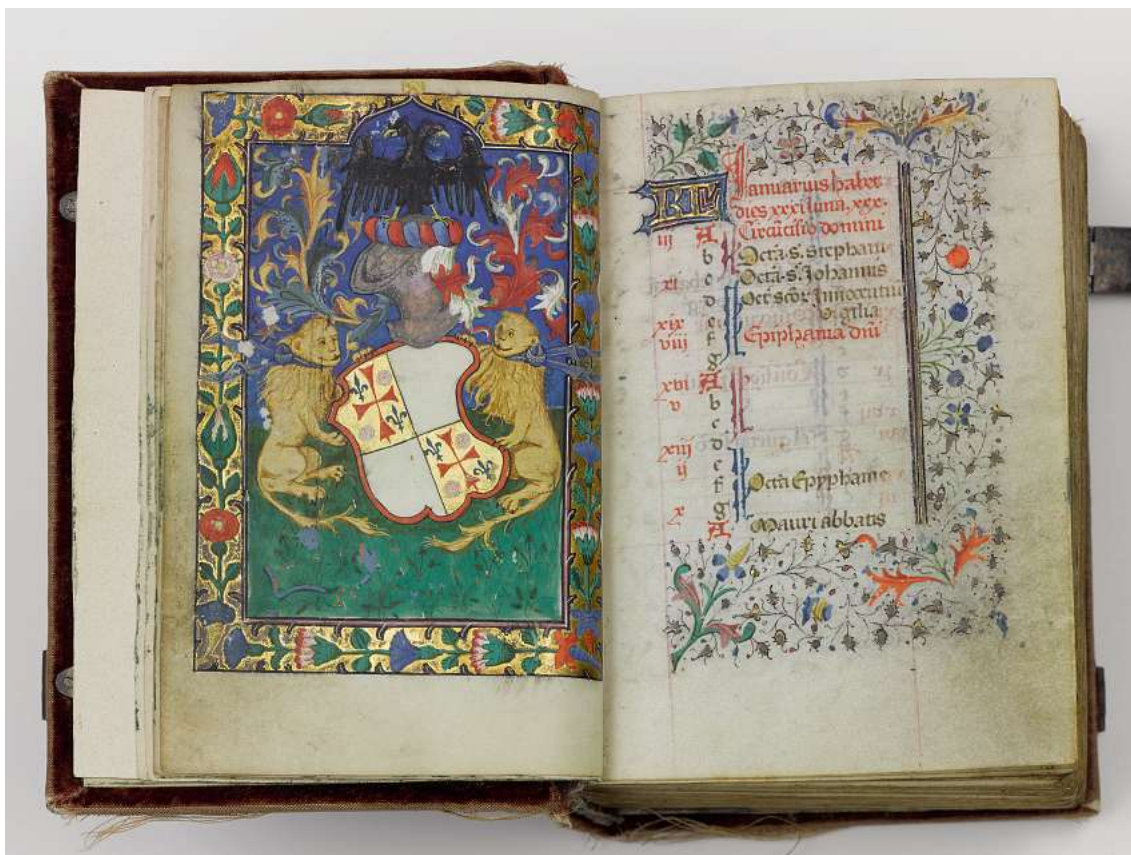 KL Januarius habet
dies xxxi luna. xxx.
iii A Circu͂cisio domini
b Octa. s. Stephani
xi c Octa. s. Johannis
d Oct scor Innocentiu
xix e Vigilia
viii f Epiphania dni
g
xvi A
v b
c
xiii d
ii e
f Octa Epyphanie
x g
A Mauri abbatis